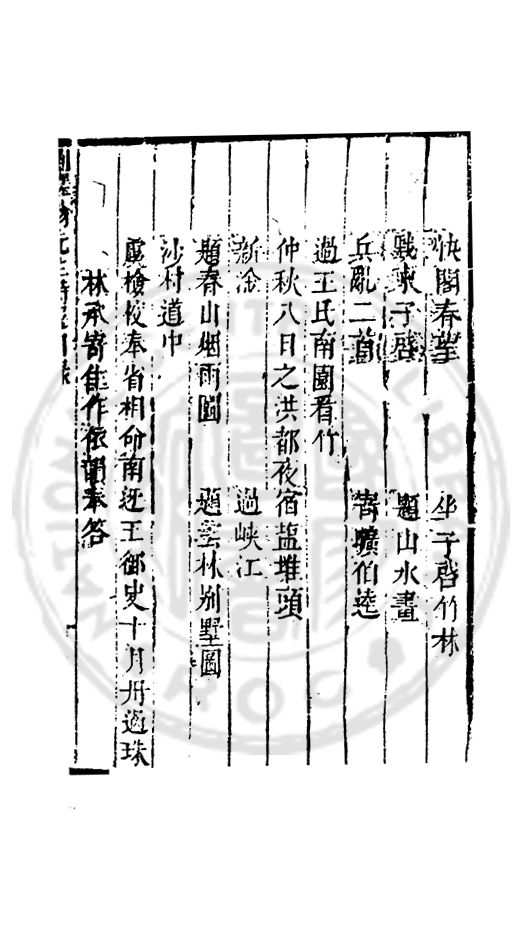 快閣春望 坐子啓竹林
戲東子啓 題山水畫
兵亂二首 寄曠伯逵
過王氏南園看竹
仲秋八日之洪都夜宿盐堆頭
新淦 過峽江
題春山烟雨圖 題雲林别墅圖
沙村道中
虞檢校奉省相命南迓王御史十月卅過珠
林承寄佳作依韻奉答